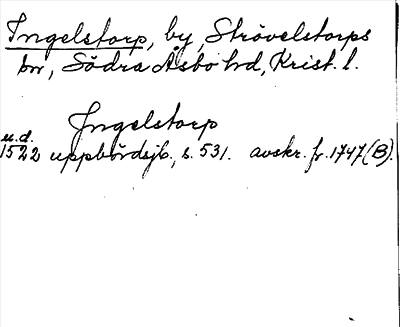 Ingelstorp, by, Strövelstorps
sn, Södra Åsbo hd, Krist. l.
Ingelstorp
u.d.
1522 uppbördsjb., s. 531. avskr. fr. 1747 (B).